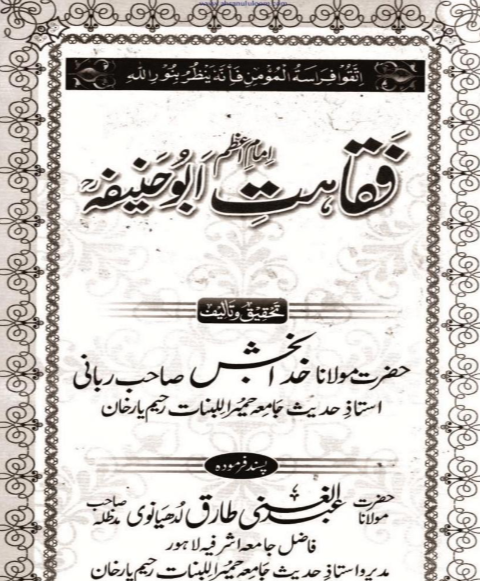 اتقوا فراسة المؤمن فانه ينظر بنور الله
فقاہتِ امام اعظم ابو حنیفہؒ
تحقیق و تالیف
حضرت مولانا خدا بخش صاحب ربانی
استاذِ حدیث جامعہ حمیرا للبنات رحیم یار خان
پسند فرمودہ
حضرت مولانا عبدالغنی طارق لدھیانوی صاحب مدظلہ
فاضل جامعہ اشرفیہ لاہور
مدیر و استاذِ حدیث جامعہ حمیرا للبنات رحیم یار خان